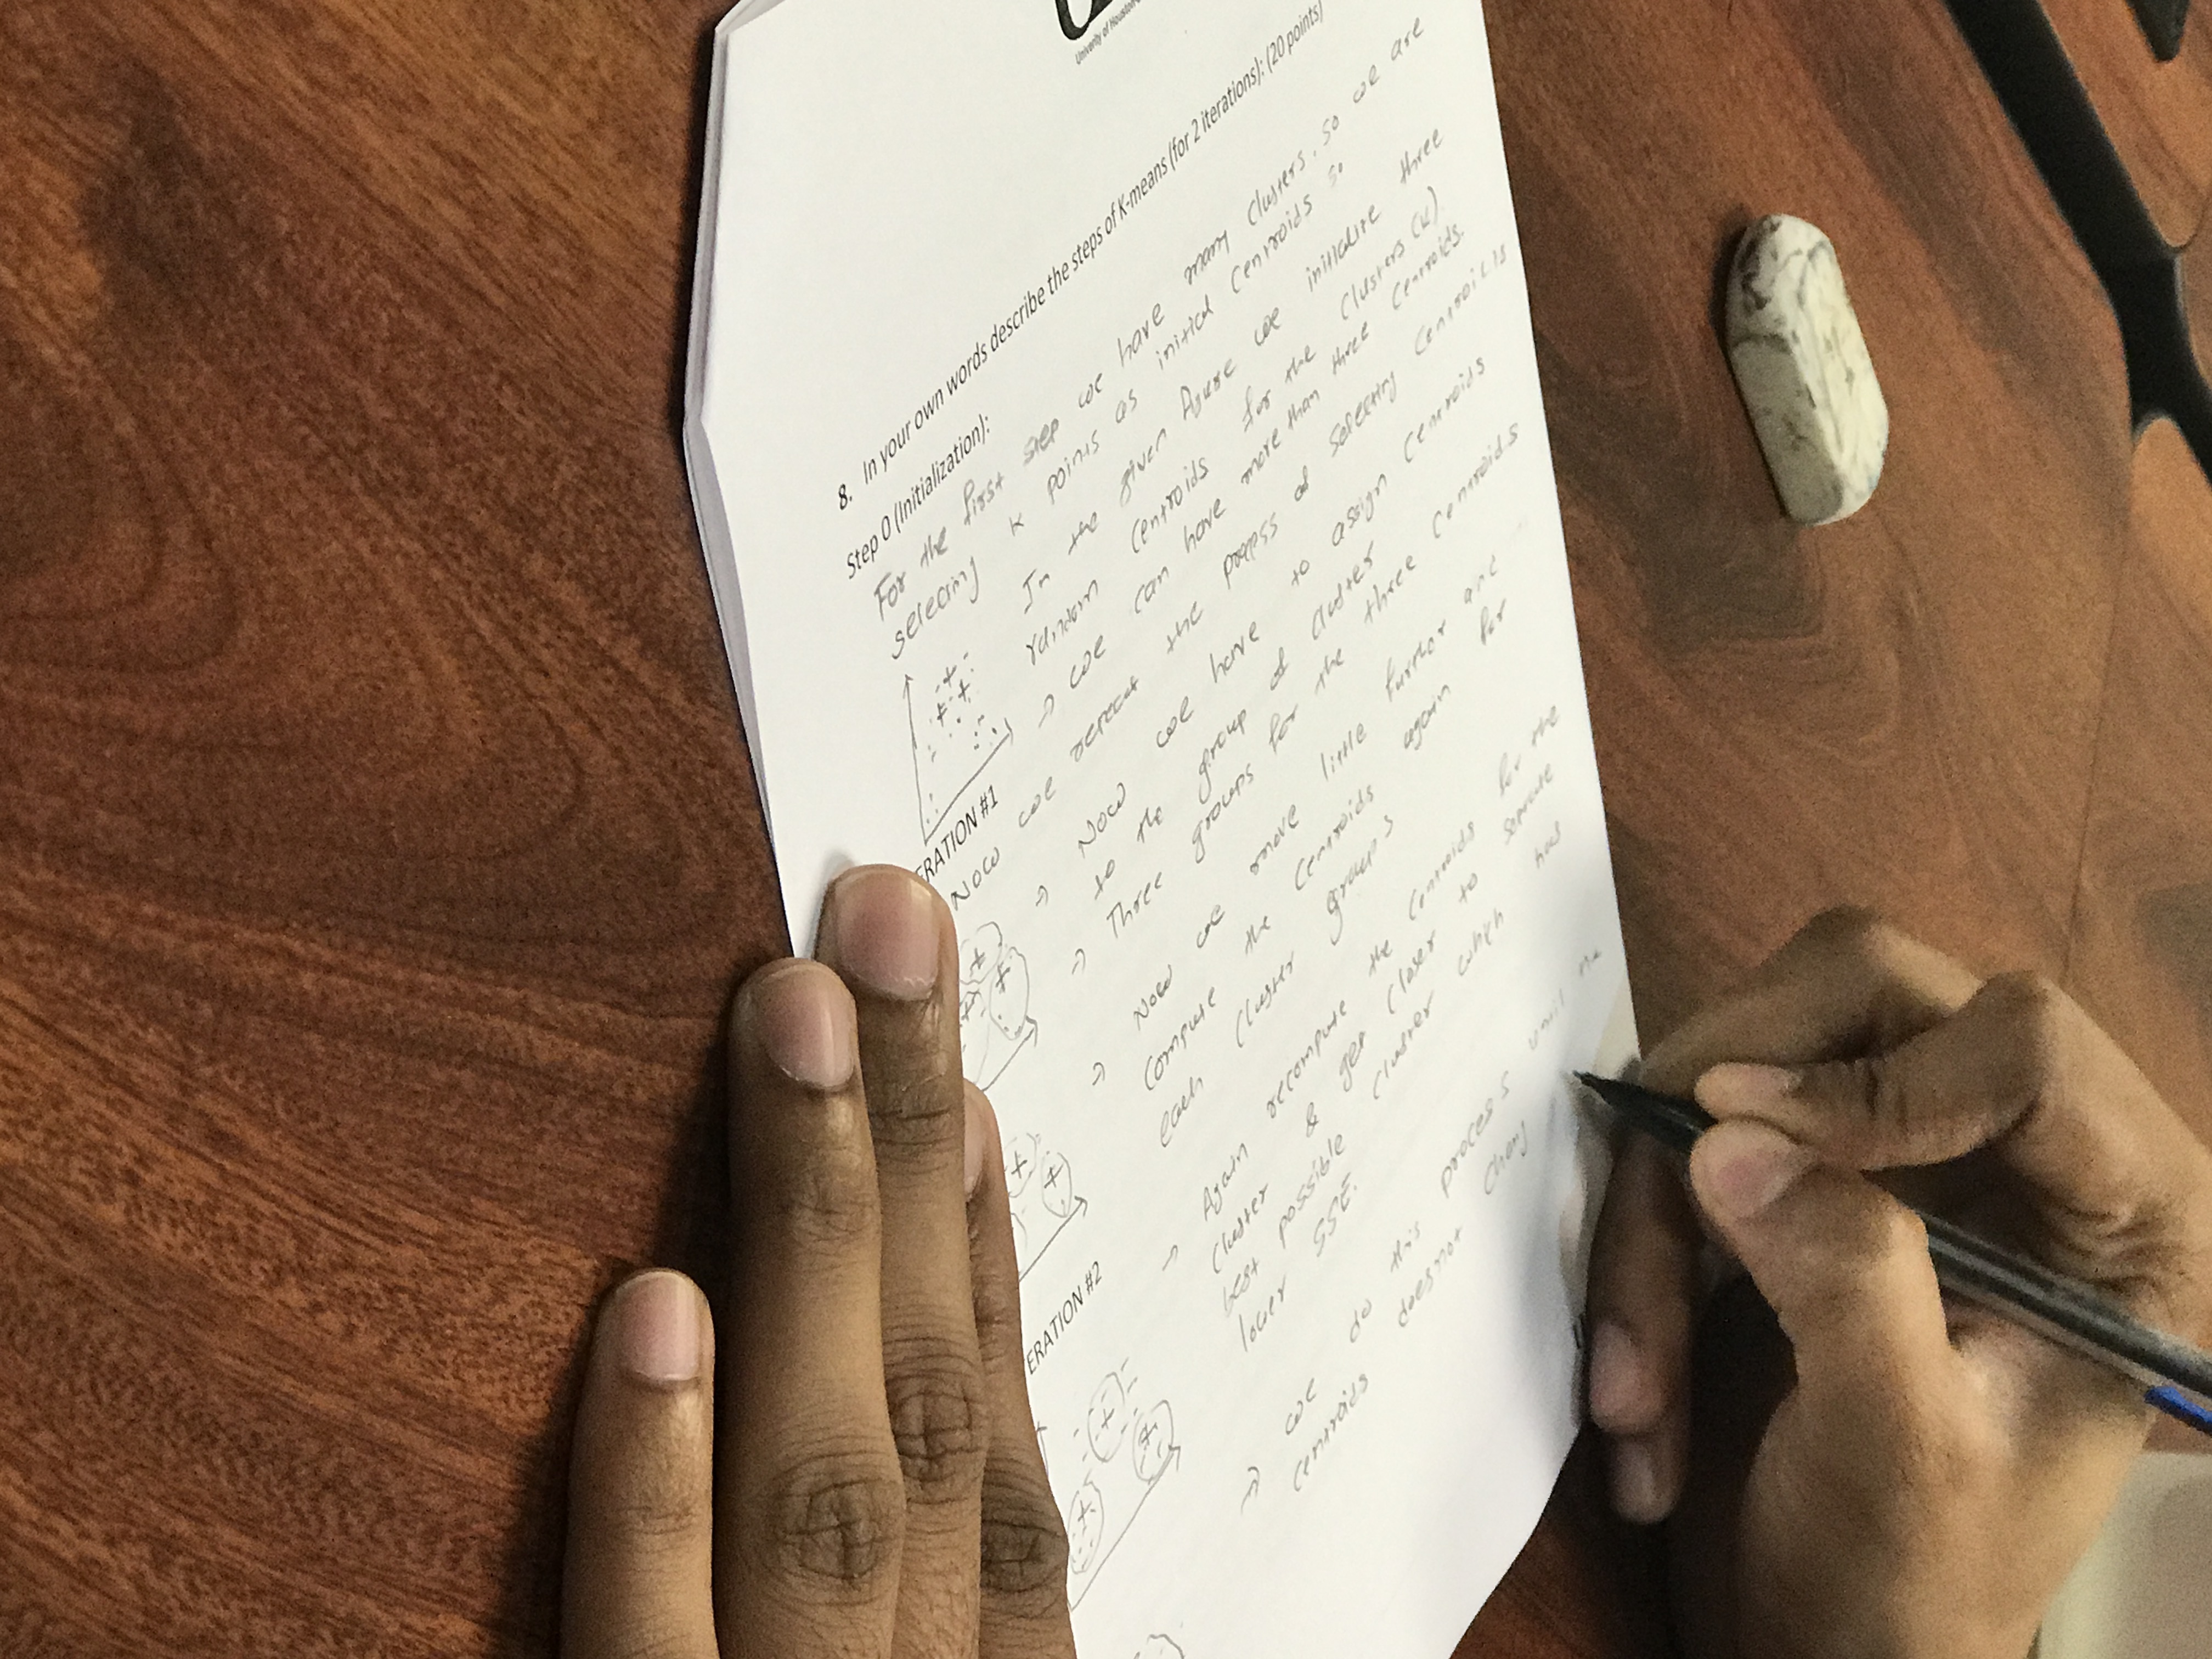 University of Houston
8. In your own words describe the steps of K-means (for 2 iterations): (20 points)
Step 0 (Initialization):
For the first step we have many clusters, so we are
selecting K points as initial centroids so
In the given figure we initialize three
random centroids for the clusters (K).
→ we can have more than three centroids.
ERATION #1
Now we repeat the process of selecting centroids
→ Now we have to assign centroids
to the group of cluster
→ Three groups for the three centroids
→ Now we move little further and
compute the centroids again for
each cluster groups
ERATION #2
→ Again recompute the centroids for the
cluster & get closer to separate
best possible cluster which has
lower SSE.
→ we do this process until the
centroids doesnot chang